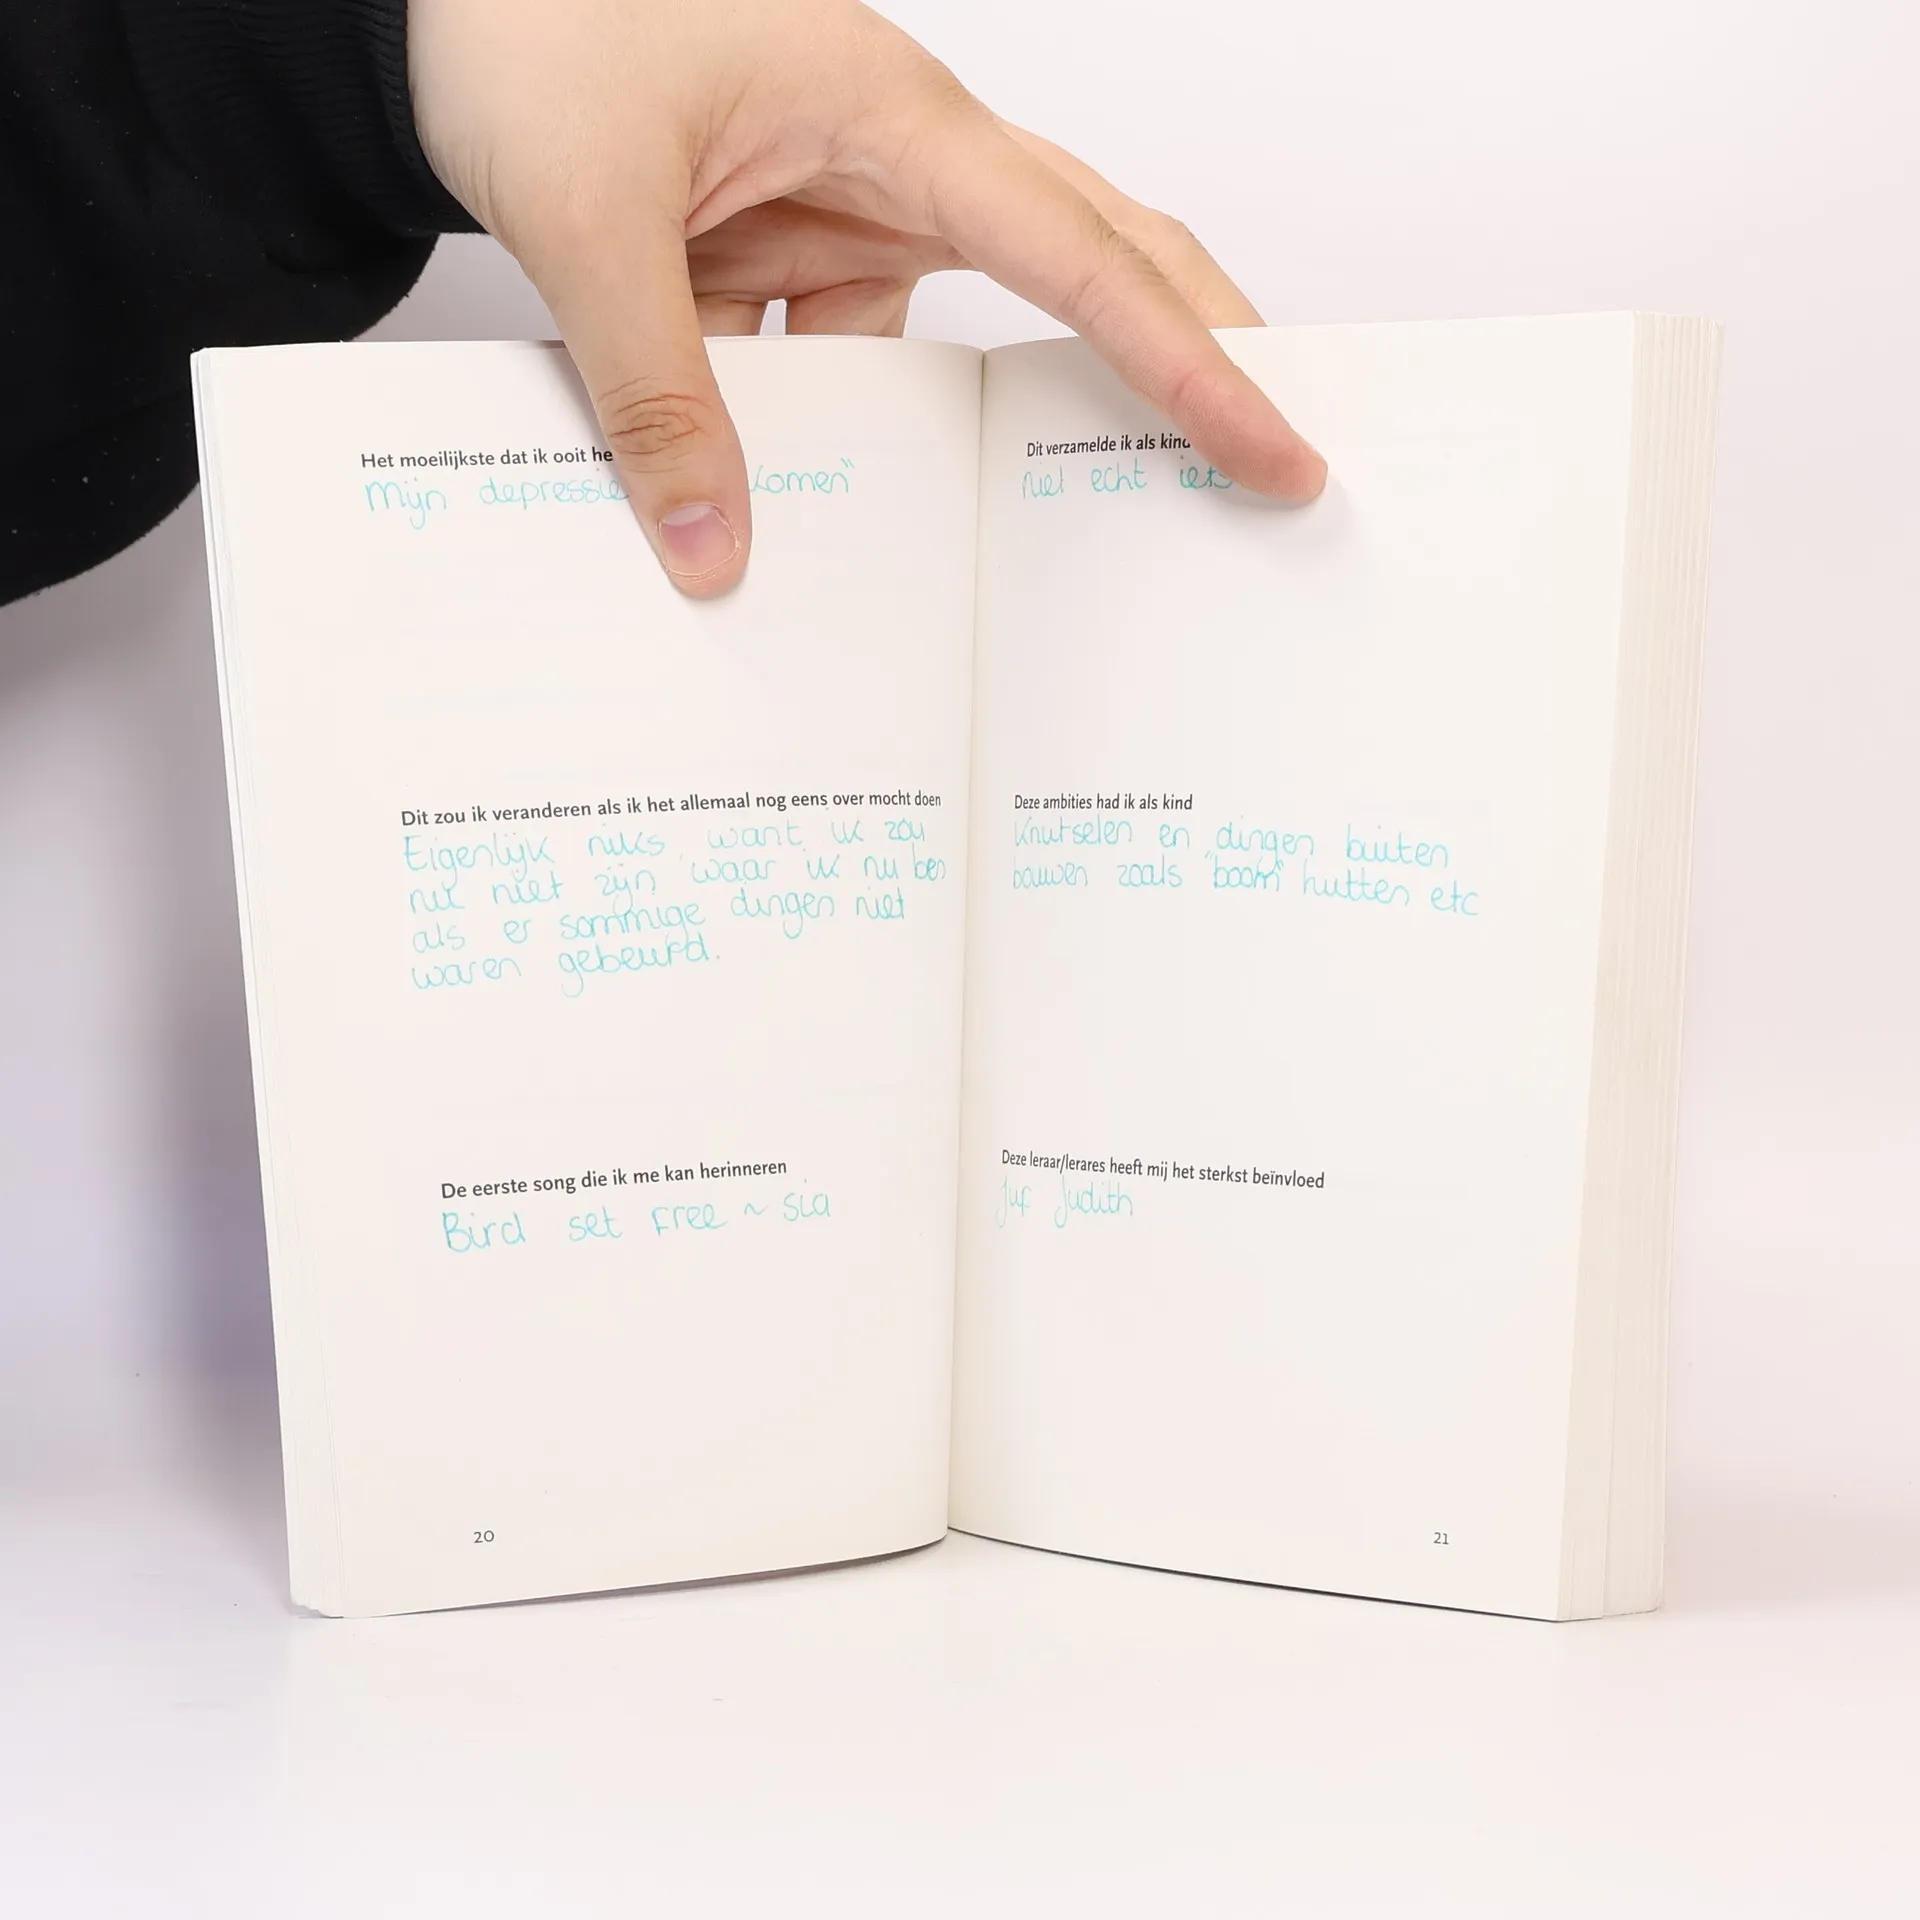 Het moeilijkste dat ik ooit he
Mijn depressie komen"
Dit zou ik veranderen als ik het allemaal nog eens over mocht doen
Eigenlijk niks want ik zou
nu niet zijn waar ik nu ben
als er sommige dingen niet
waren gebeurd.
De eerste song die ik me kan herinneren
Bird set free ~ sia
20
Dit verzamelde ik als kind
niet echt iets
Deze ambities had ik als kind
Knutselen en dingen buiten
bouwen zoals "boom" hutten etc
Deze leraar/lerares heeft mij het sterkst beïnvloed
Juf Judith
21